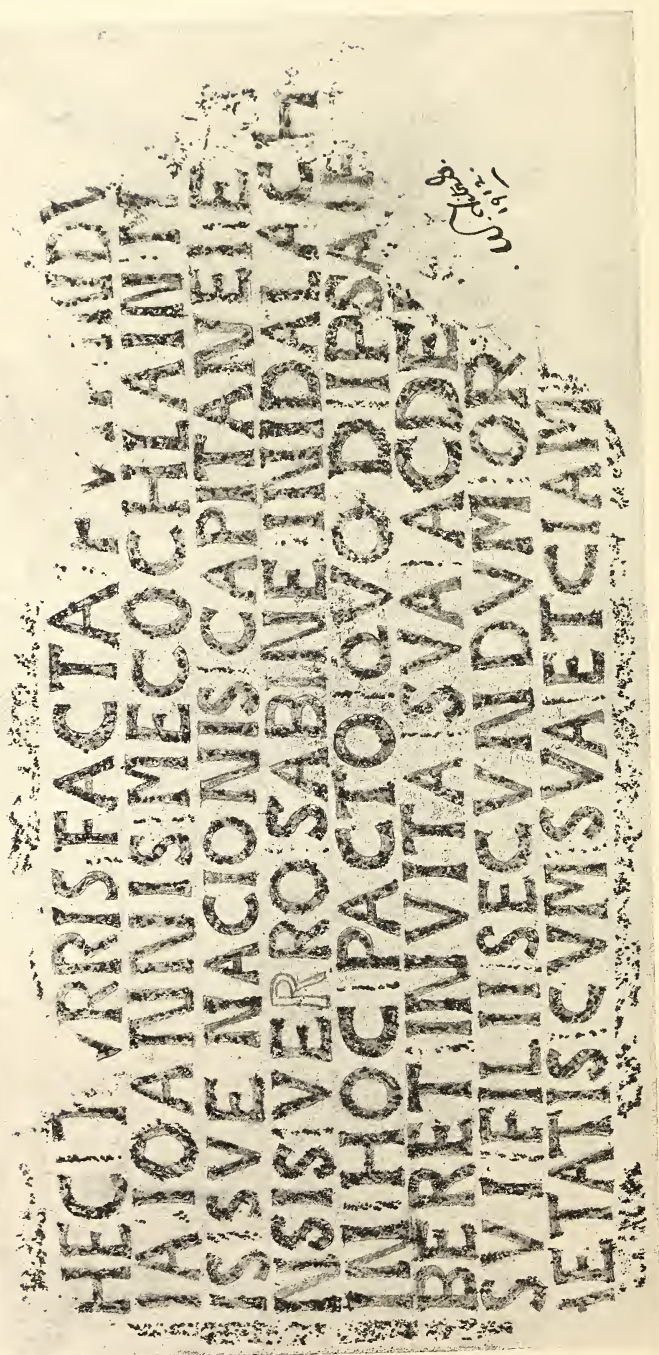 HEC TVRRIS FACTA
IA IOANNIS MECOCHLAIN M
IS SVE NACIONIS CAPITANEI E
NSIS VERRO SABINE INI DALACH
IN HOC PACTO QVOD IPSA
BERET IN VITA SVA AC DE
SVI FILII SECVNDVM OR
IETATIS CVM SVA ETCIAM
1912